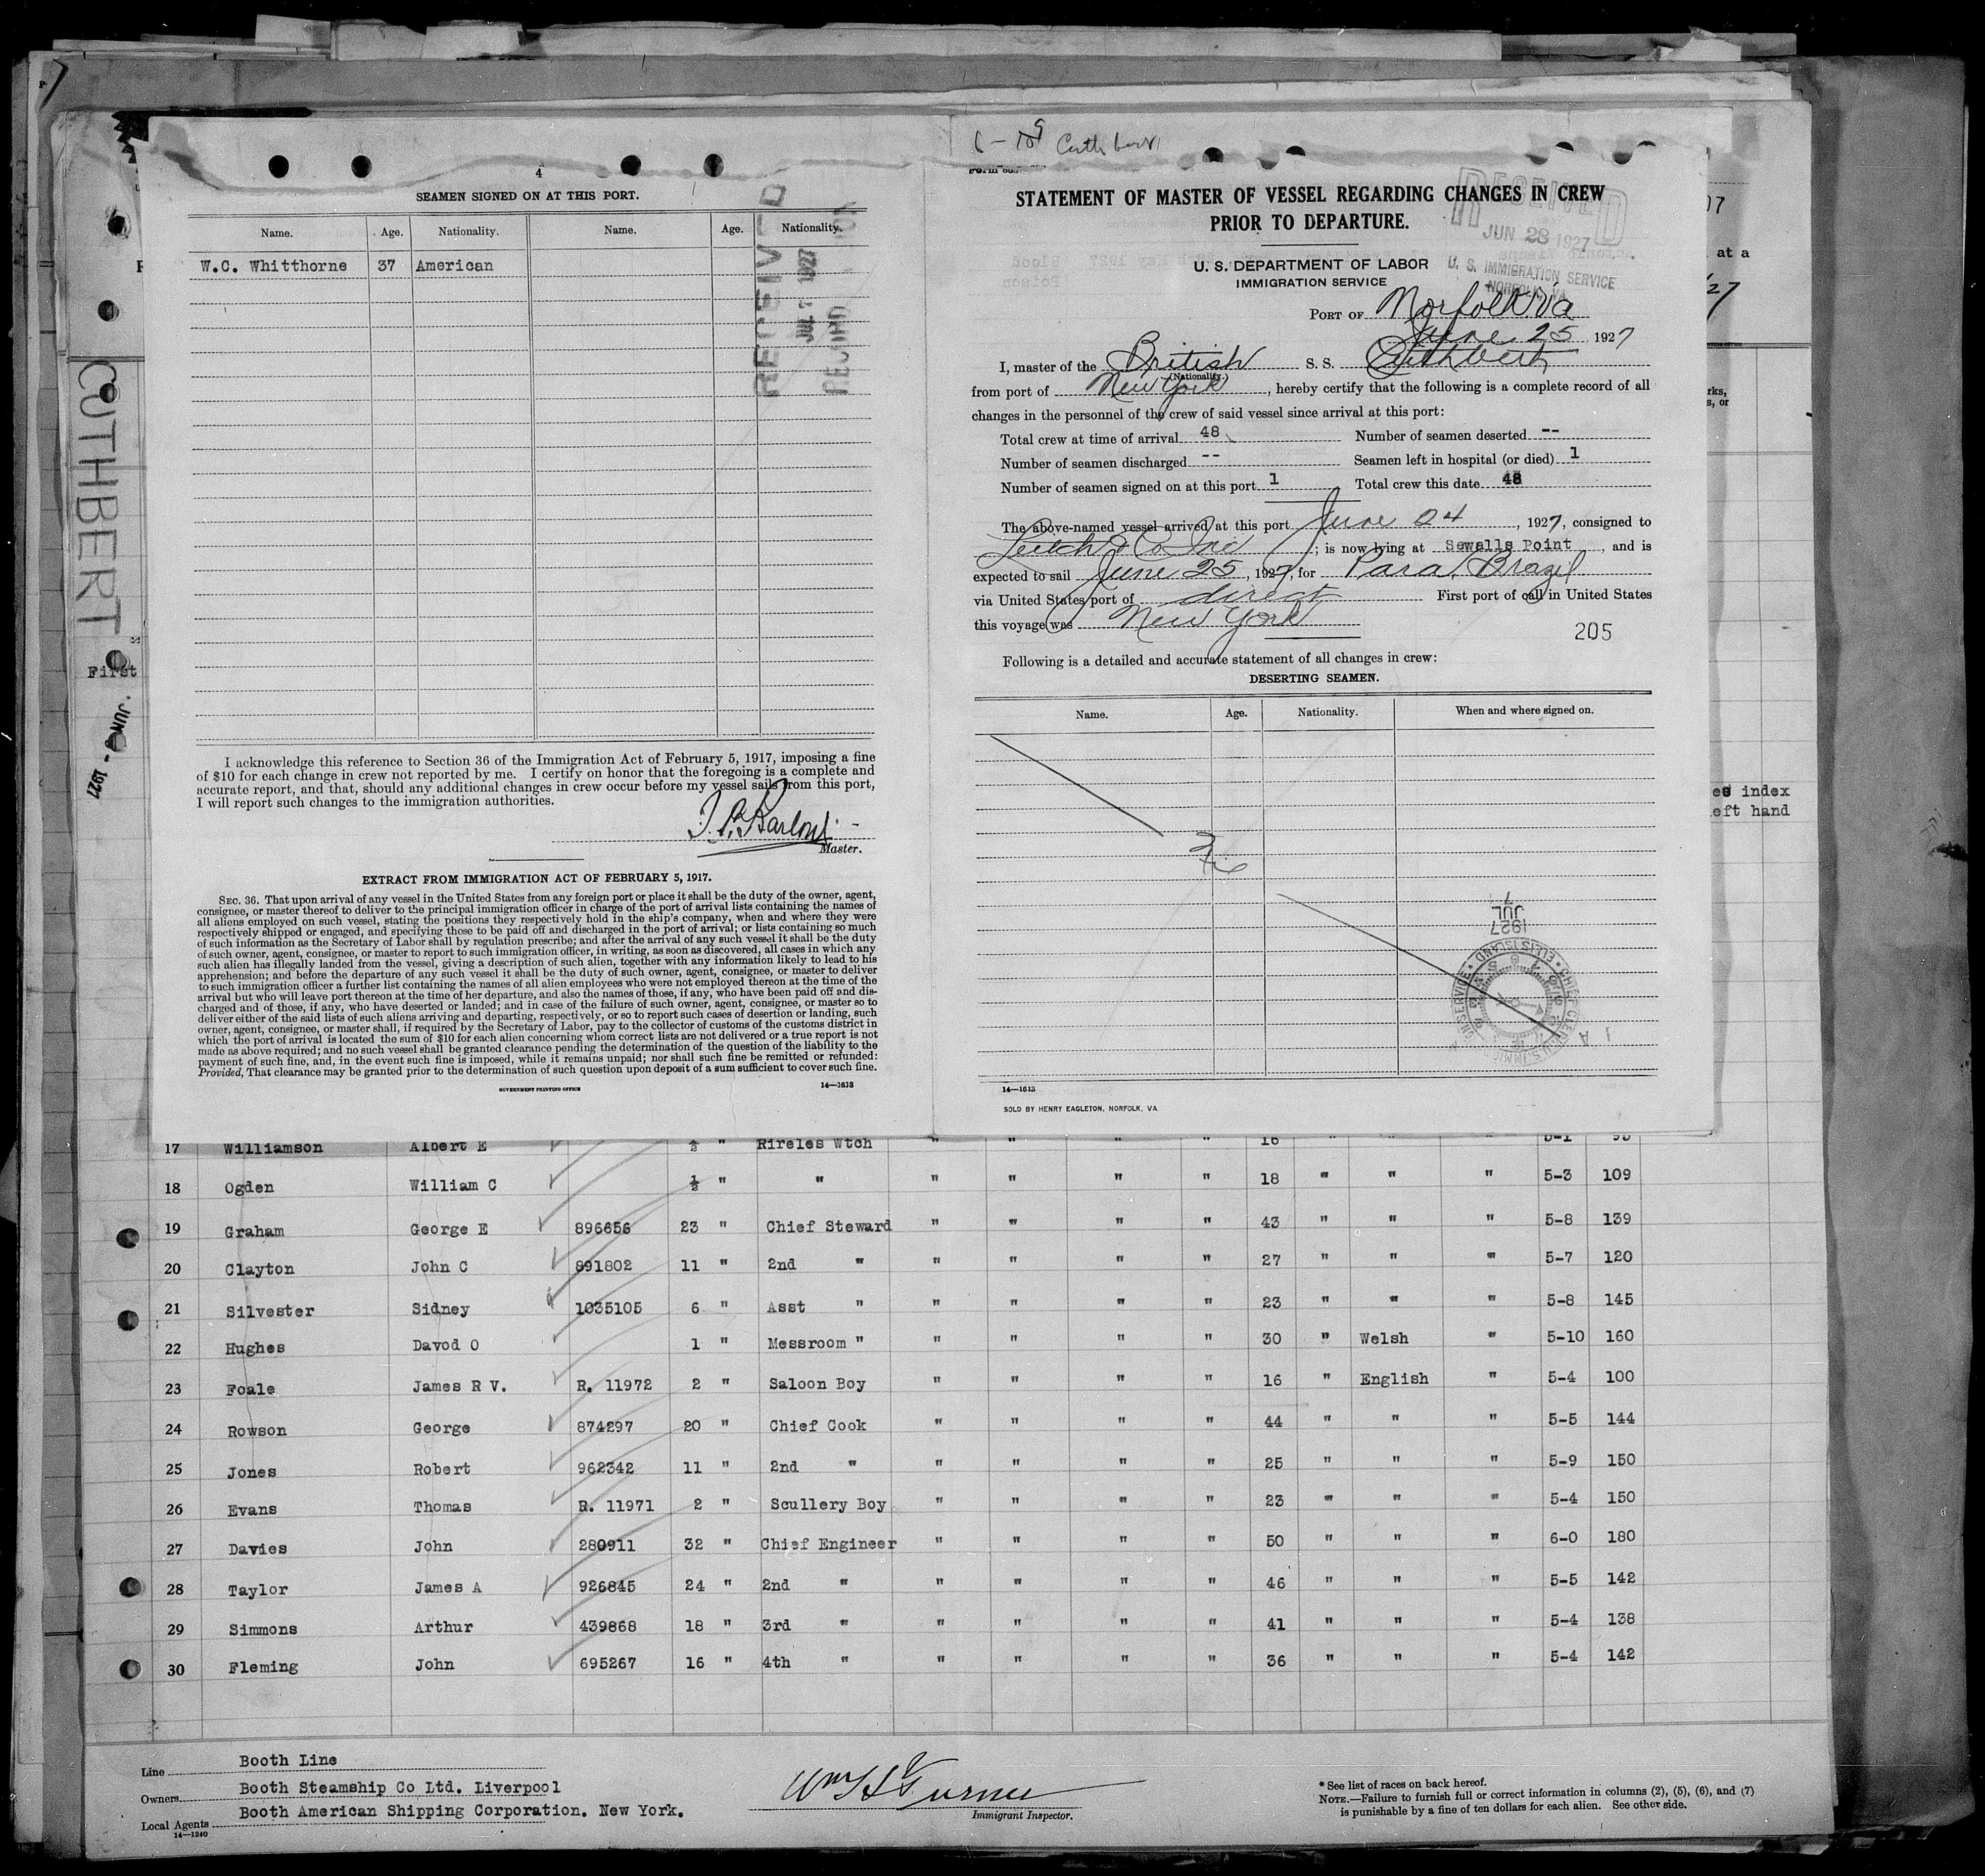 4
SEAMEN SIGNED ON AT THIS PORT.
Name. Age. Nationality. Name. Age. Nationality.
W.C. Whitthorne 37 American
RECEIVED
JUL 7 1927
I acknowledge this reference to Section 36 of the Immigration Act of February 5, 1917, imposing a fine
of $10 for each change in crew not reported by me. I certify on honor that the foregoing is a complete and
accurate report, and that, should any additional changes in crew occur before my vessel sails from this port,
I will report such changes to the immigration authorities.
Master.
EXTRACT FROM IMMIGRATION ACT OF FEBRUARY 5, 1917.
SEC. 36. That upon arrival of any vessel in the United States from any foreign port or place it shall be the duty of the owner, agent,
consignee, or master thereof to deliver to the principal immigration officer in charge of the port of arrival lists containing the names of
all aliens employed on such vessel, stating the positions they respectively hold in the ship's company, when and where they were
respectively shipped or engaged, and specifying those to be paid off and discharged in the port of arrival; or lists containing so much
of such information as the Secretary of Labor shall by regulation prescribe; and after the arrival of any such vessel it shall be the duty
of such owner, agent, consignee, or master to report to such immigration officer, in writing, as soon as discovered, all cases in which any
such alien has illegally landed from the vessel, giving a description of such alien, together with any information likely to lead to his
apprehension; and before the departure of any such vessel it shall be the duty of such owner, agent, consignee, or master to deliver
to such immigration officer a further list containing the names of all alien employees who were not employed thereon at the time of the
arrival but who will leave port thereon at the time of her departure, and also the names of those, if any, who have been paid off and dis-
charged and of those, if any, who have deserted or landed; and in case of the failure of such owner, agent, consignee, or master so to
deliver either of the said lists of such aliens arriving and departing, respectively, or so to report such cases of desertion or landing, such
owner, agent, consignee, or master shall, if required by the Secretary of Labor, pay to the collector of customs of the customs district in
which the port of arrival is located the sum of $10 for each alien concerning whom correct lists are not delivered or a true report is not
made as above required; and no such vessel shall be granted clearance pending the determination of the question of the liability to the
payment of such fine, and, in the event such fine is imposed, while it remains unpaid; nor shall such fine be remitted or refunded:
Provided, That clearance may be granted prior to the determination of such question upon deposit of a sum sufficient to cover such fine.
GOVERNMENT PRINTING OFFICE 14—1613
Cuthbert
STATEMENT OF MASTER OF VESSEL REGARDING CHANGES IN CREW
PRIOR TO DEPARTURE.
RECEIVED
JUN 28 1927
U. S. IMMIGRATION SERVICE
NORFOLK, VA.
U. S. DEPARTMENT OF LABOR
IMMIGRATION SERVICE
PORT OF Norfolk Va
June 25 1927
I, master of the British S. S. Cuthbert
(Nationality.)
from port of New York, hereby certify that the following is a complete record of all
changes in the personnel of the crew of said vessel since arrival at this port:
Total crew at time of arrival 48 Number of seamen deserted --
Number of seamen discharged -- Seamen left in hospital (or died) 1
Number of seamen signed on at this port 1 Total crew this date 48
The above-named vessel arrived at this port June 24, 1927, consigned to
Leitch & Co Inc; is now lying at Sewells Point, and is
expected to sail June 25, 1927, for Para, Brazil
via United States port of direct First port of call in United States
this voyage was New York
205
Following is a detailed and accurate statement of all changes in crew:
DESERTING SEAMEN.
Name. Age. Nationality. When and where signed on.
JUL 7
1927
14—1613
SOLD BY HENRY EAGLETON, NORFOLK, VA
CUTHBERT
First
JUN 9 - 1927
at a
index
left hand
17 Williamson Albert E ½ " Rireles Wtch " " " " 16 " " " 5-1 95
18 Ogden William C ½ " " " " " " 18 " " " 5-3 109
19 Graham George E 896656 23 " Chief Steward " " " " 43 " " " 5-8 139
20 Clayton John C 891802 11 " 2nd " " " " " 27 " " " 5-7 120
21 Silvester Sidney 1035105 6 " Asst " " " " " 23 " " " 5-8 145
22 Hughes Davod O 1 " Messroom " " " " " 30 " Welsh " 5-10 160
23 Foale James R V. R. 11972 2 " Saloon Boy " " " " 16 " English " 5-4 100
24 Rowson George 874297 20 " Chief Cook " " " " 44 " " " 5-5 144
25 Jones Robert 962342 11 " 2nd " " " " " 25 " " " 5-9 150
26 Evans Thomas R. 11971 2 " Scullery Boy " " " " 23 " " " 5-4 150
27 Davies John 280911 32 " Chief Engineer " " " " 50 " " " 6-0 180
28 Taylor James A 926845 24 " 2nd " " " " " 46 " " " 5-5 142
29 Simmons Arthur 439868 18 " 3rd " " " " " 41 " " " 5-4 138
30 Fleming John 695267 16 " 4th " " " " " 36 " " " 5-4 142
Line Booth Line
Owners Booth Steamship Co Ltd. Liverpool
Local Agents Booth American Shipping Corporation. New York.
14—1240
Wm H Turner
Immigrant Inspector.
* See list of races on back hereof.
NOTE.—Failure to furnish full or correct information in columns (2), (5), (6), and (7)
is punishable by a fine of ten dollars for each alien. See other side.